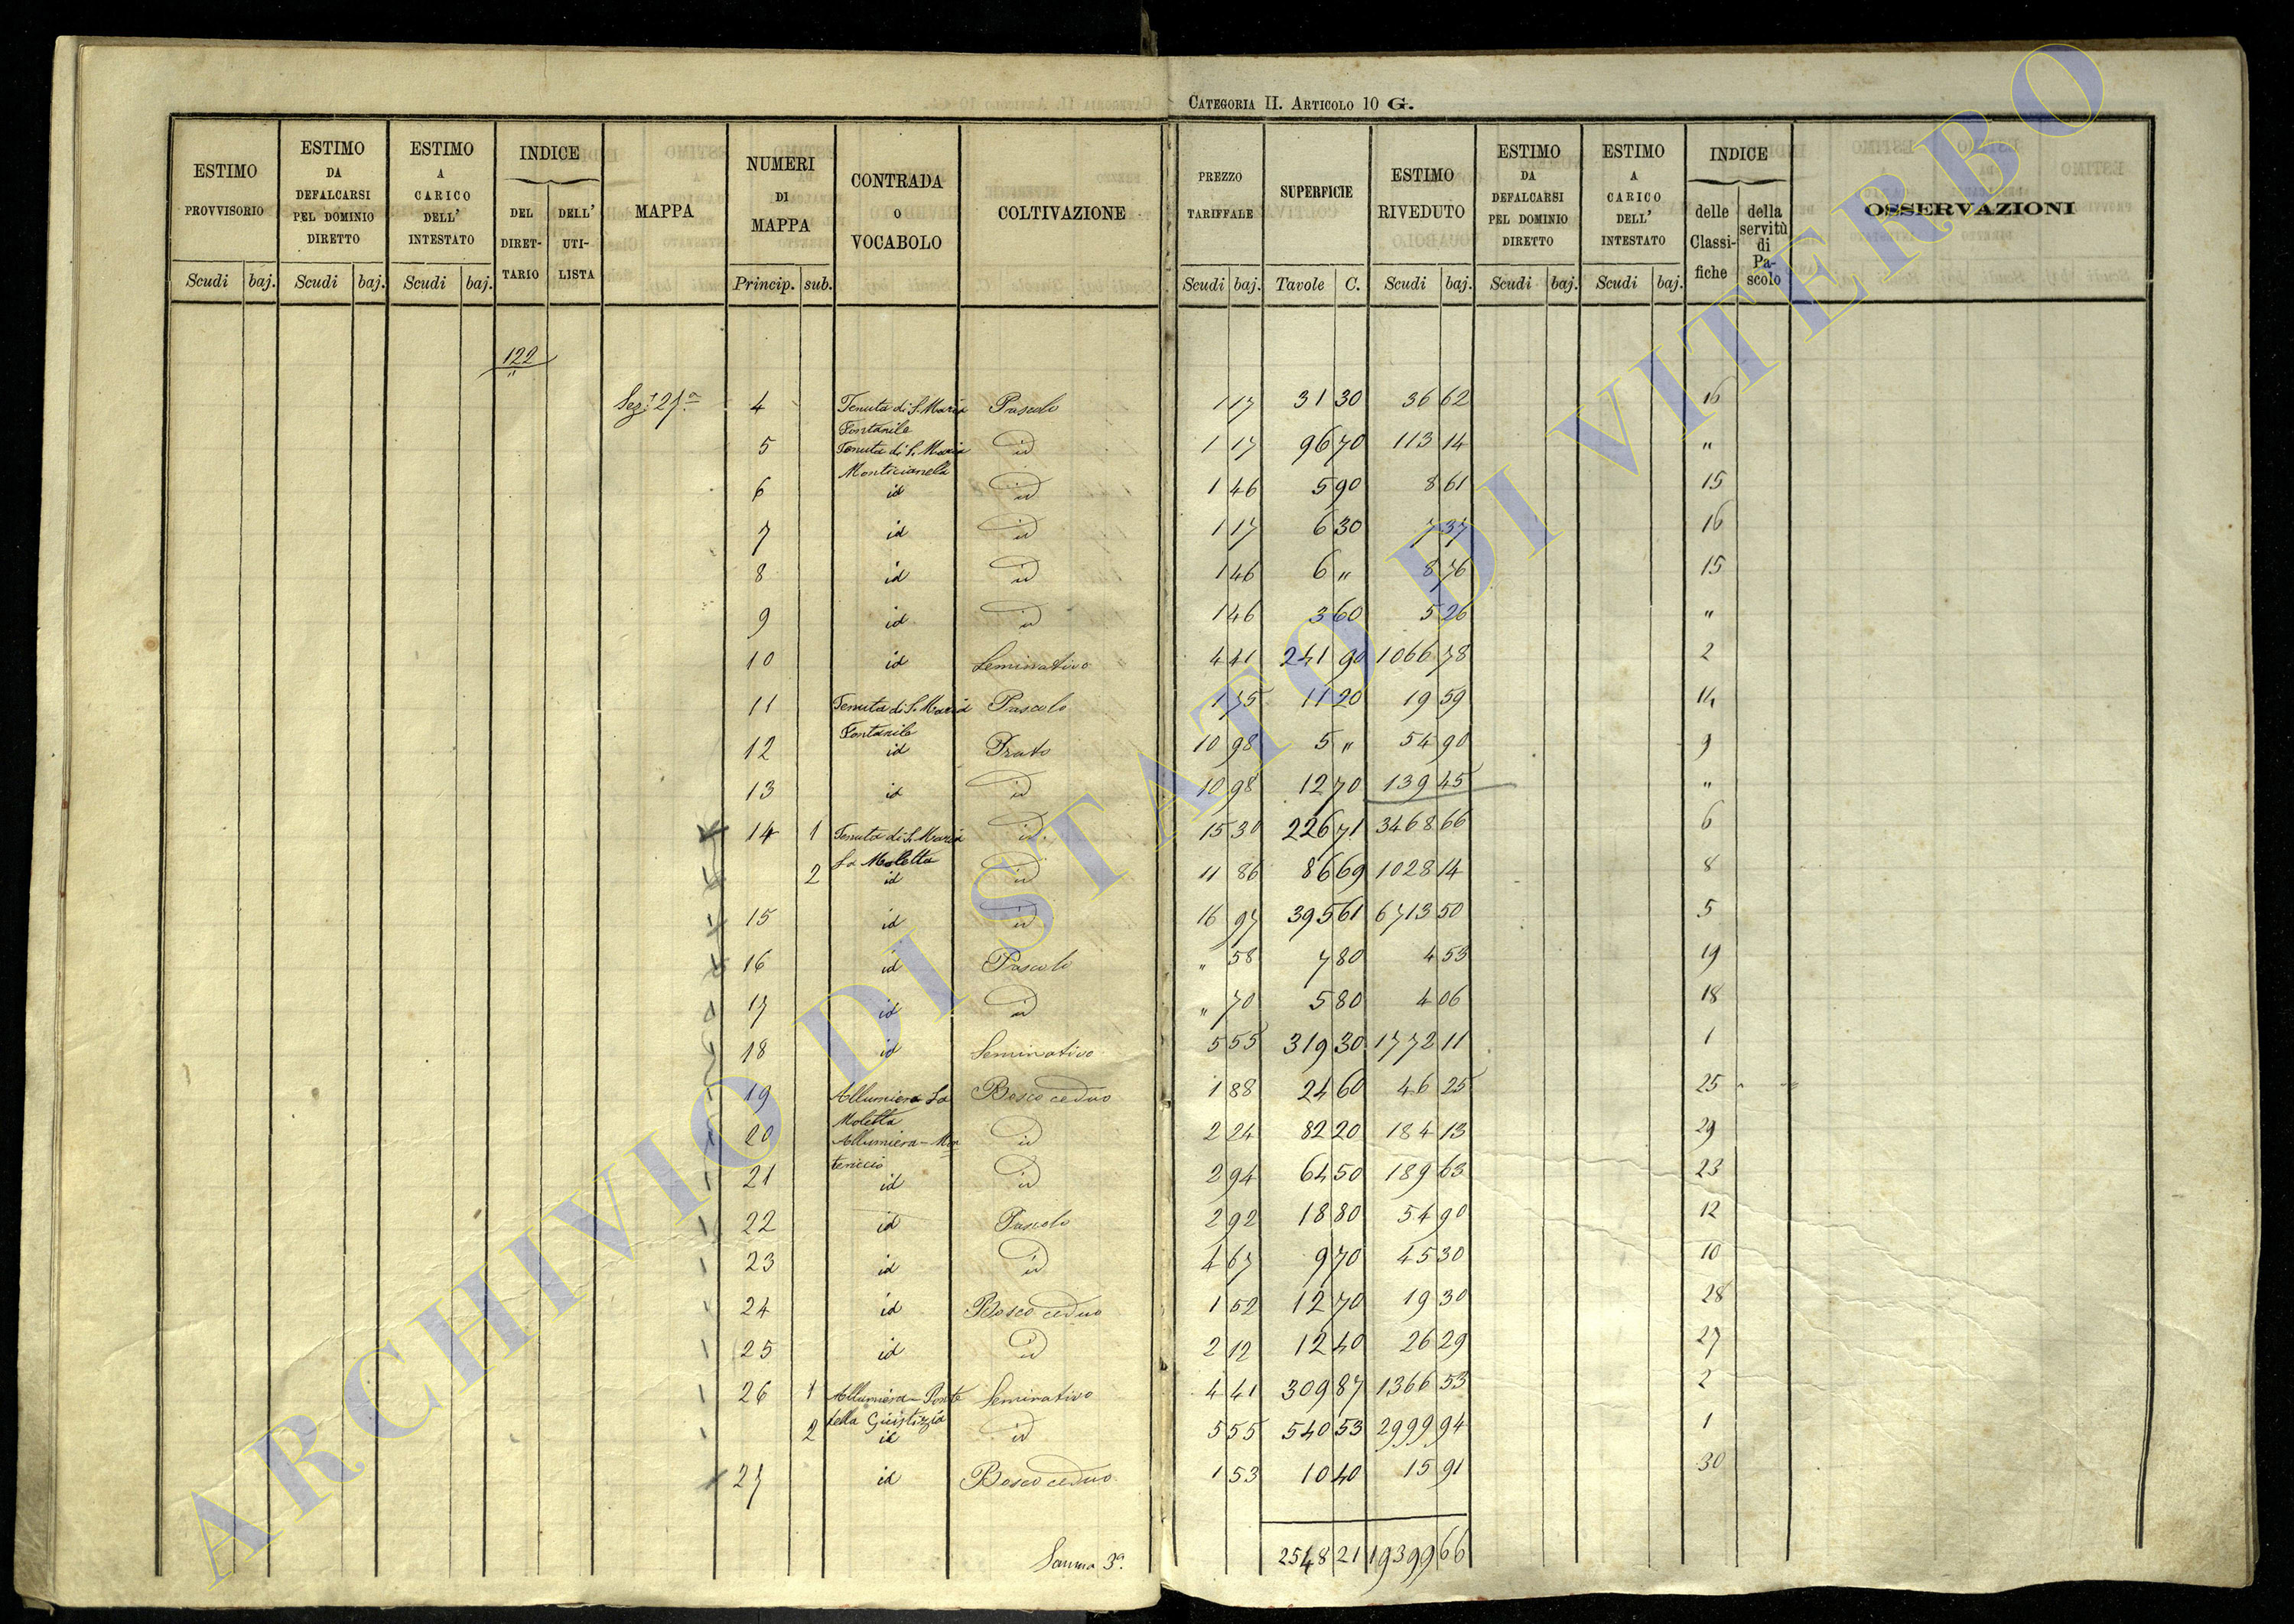 CATEGORIA II. ARTICOLO 10 G.
ESTIMO PROVVISORIO | ESTIMO DA DEFALCARSI PEL DOMINIO DIRETTO | ESTIMO A CARICO DELL' INTESTATO | INDICE DEL DIRETTARIO | DELL' UTILISTA | MAPPA | NUMERI DI MAPPA | CONTRADA O VOCABOLO | COLTIVAZIONE | PREZZO TARIFFALE | SUPERFICIE | ESTIMO RIVEDUTO | ESTIMO DA DEFALCARSI PEL DOMINIO DIRETTO | ESTIMO A CARICO DELL' INTESTATO | INDICE delle Classifiche | della servitù di Pascolo | OSSERVAZIONI
Scudi baj. Scudi baj. Scudi baj. Princip. sub. Scudi baj. Tavole C. Scudi baj. Scudi baj. Scudi baj.
122
"
Sez.e 27a 4 Tenuta di S. Maria Pascolo 1 17 31 30 36 62 16
Fontanile
5 Tenuta di S. Maria id 1 17 96 70 113 14 "
Monticianella
6 id id 1 46 5 90 8 61 15
7 id id 1 17 6 30 7 37 16
8 id id 1 46 6 " 8 76 15
9 id id 1 46 3 60 5 26 "
10 id Seminativo 4 41 241 90 1066 78 2
11 Tenuta di S. Maria Pascolo 1 75 11 20 19 59 14
Fontanile
12 id Prato 10 98 5 " 54 90 9
13 id id 10 98 12 70 139 45 "
14 1 Tenuta di S. Maria id 15 30 226 71 3468 66 6
La Moletta
2 id id 11 86 86 69 1028 14 8
15 id id 16 97 395 61 6713 50 5
16 id Pascolo " 58 7 80 4 53 19
17 id id " 70 5 80 4 06 18
18 id Seminativo 5 55 319 30 1772 11 1
19 Allumiera La Bosco ceduo 1 88 24 60 46 25 25
Moletta
20 Allumiera - Mon id 2 24 82 20 184 13 29
tericcio
21 id id 2 94 64 50 189 63 23
22 id Pascolo 2 92 18 80 54 90 12
23 id id 4 67 9 70 45 30 10
24 id Bosco ceduo 1 52 12 70 19 30 28
25 id id 2 12 12 40 26 29 27
26 1 Allumiera - Ponte Seminativo 4 41 309 87 1366 53 2
della Giustizia
2 id id 5 55 540 53 2999 94 1
27 id Bosco ceduo 1 53 10 40 15 91 30
Somma 3a. 2548 21 19399 66
ARCHIVIO DI STATO DI VITERBO